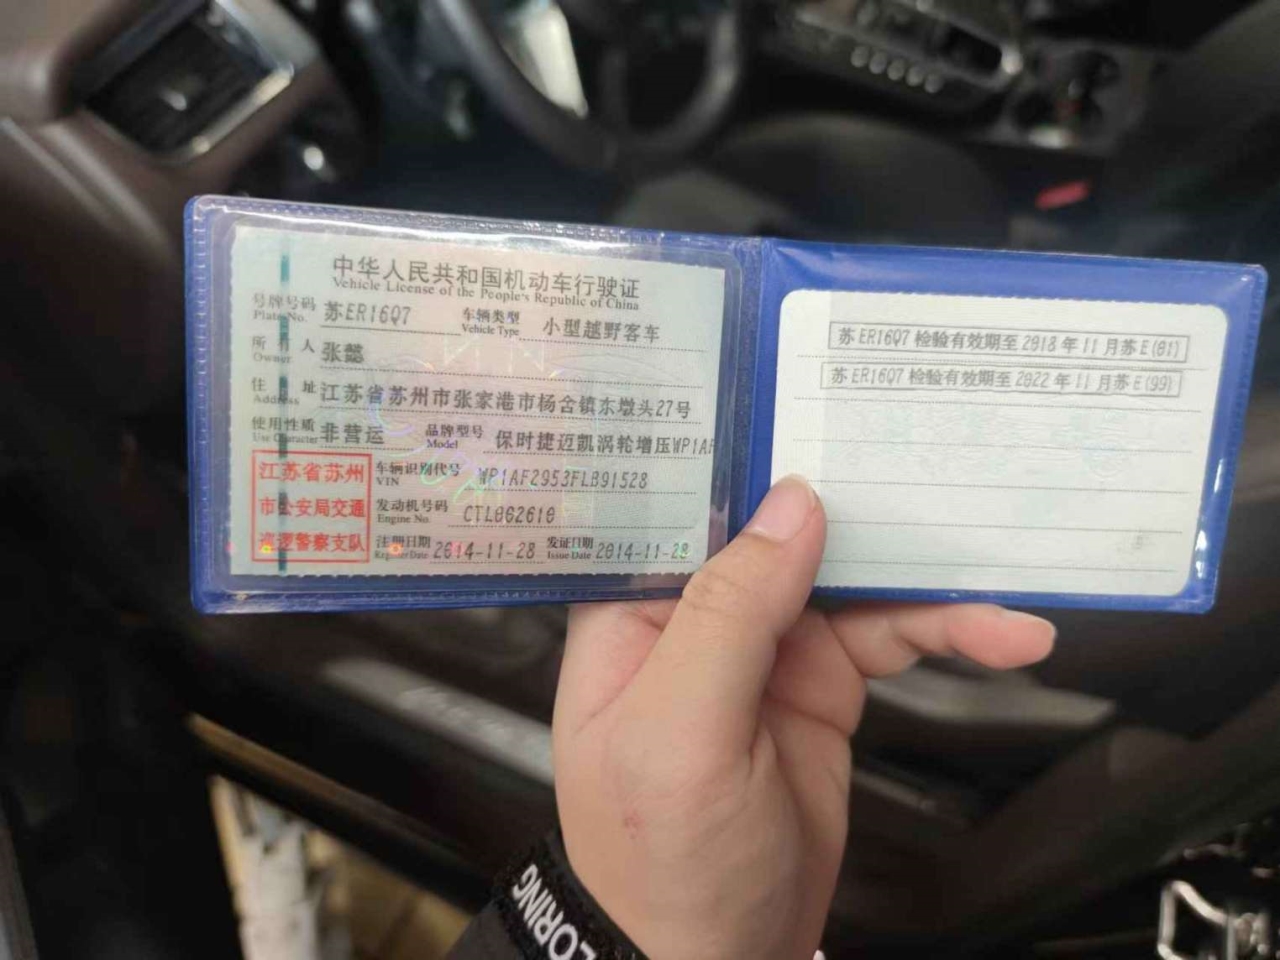 中华人民共和国机动车行驶证
Vehicle License of the People's Republic of China
号牌号码 苏ER16Q7 车辆类型 小型越野客车
Plate No. Vehicle Type
所有人 张懿
Owner
住址 江苏省苏州市张家港市杨舍镇东墩头27号
Address
使用性质 非营运 品牌型号 保时捷迈凯涡轮增压WP1AF
Use Character Model
江苏省苏州
市公安局交通
巡逻警察支队
车辆识别代号 WP1AF2953FLB91528
VIN
发动机号码 CTL002610
Engine No.
注册日期 2014-11-28 发证日期 2014-11-28
Register Date Issue Date
苏ER16Q7 检验有效期至 2018 年 11 月苏E(01)
苏ER16Q7 检验有效期至 2022 年 11 月苏E(99)
ZORING